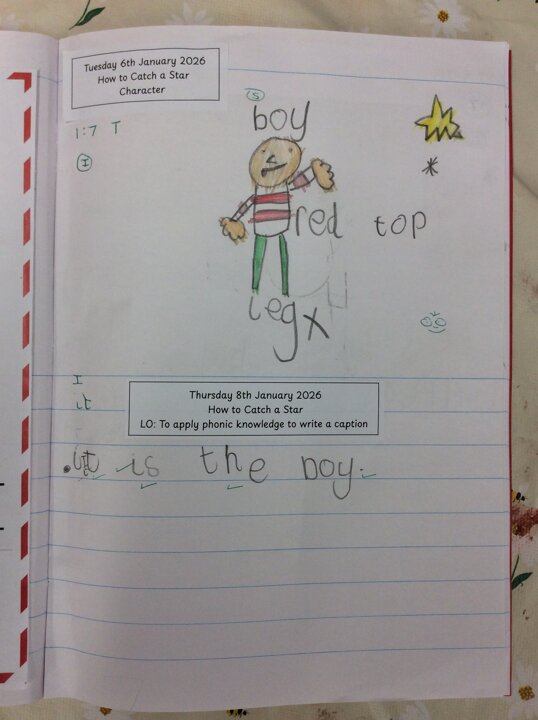 Tuesday 6th January 2026
How to Catch a Star
Character
S
1:7 T
I
boy
red top
legx
I
it
Thursday 8th January 2026
How to Catch a Star
LO: To apply phonic knowledge to write a caption
it is the boy.